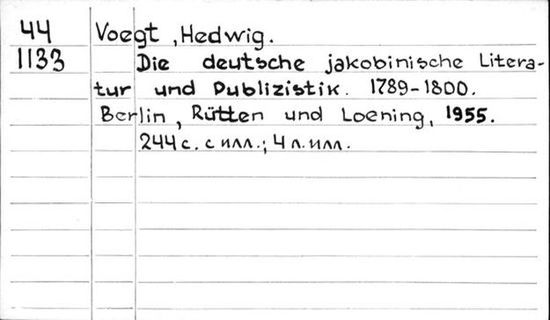 44 Voegt, Hedwig.
1133 Die deutsche jakobinische Litera-
tur und Publizistik. 1789-1800.
Berlin, Rütten und Loening, 1955.
244 с. с илл.; 4 л. илл.